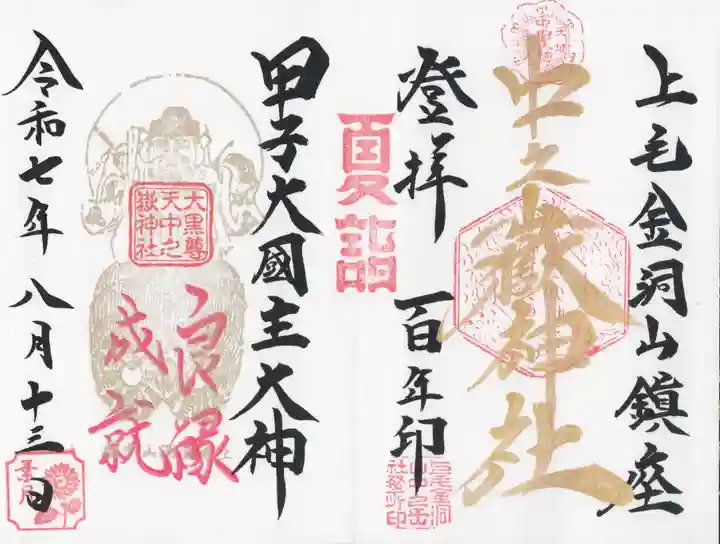 上毛金洞山鎮座
中之嶽神社
登拝 百年印
夏詣
甲子大國主大神
大黒尊
天中之
嶽神社
良縁
成就
令和七年八月十三日
葉月